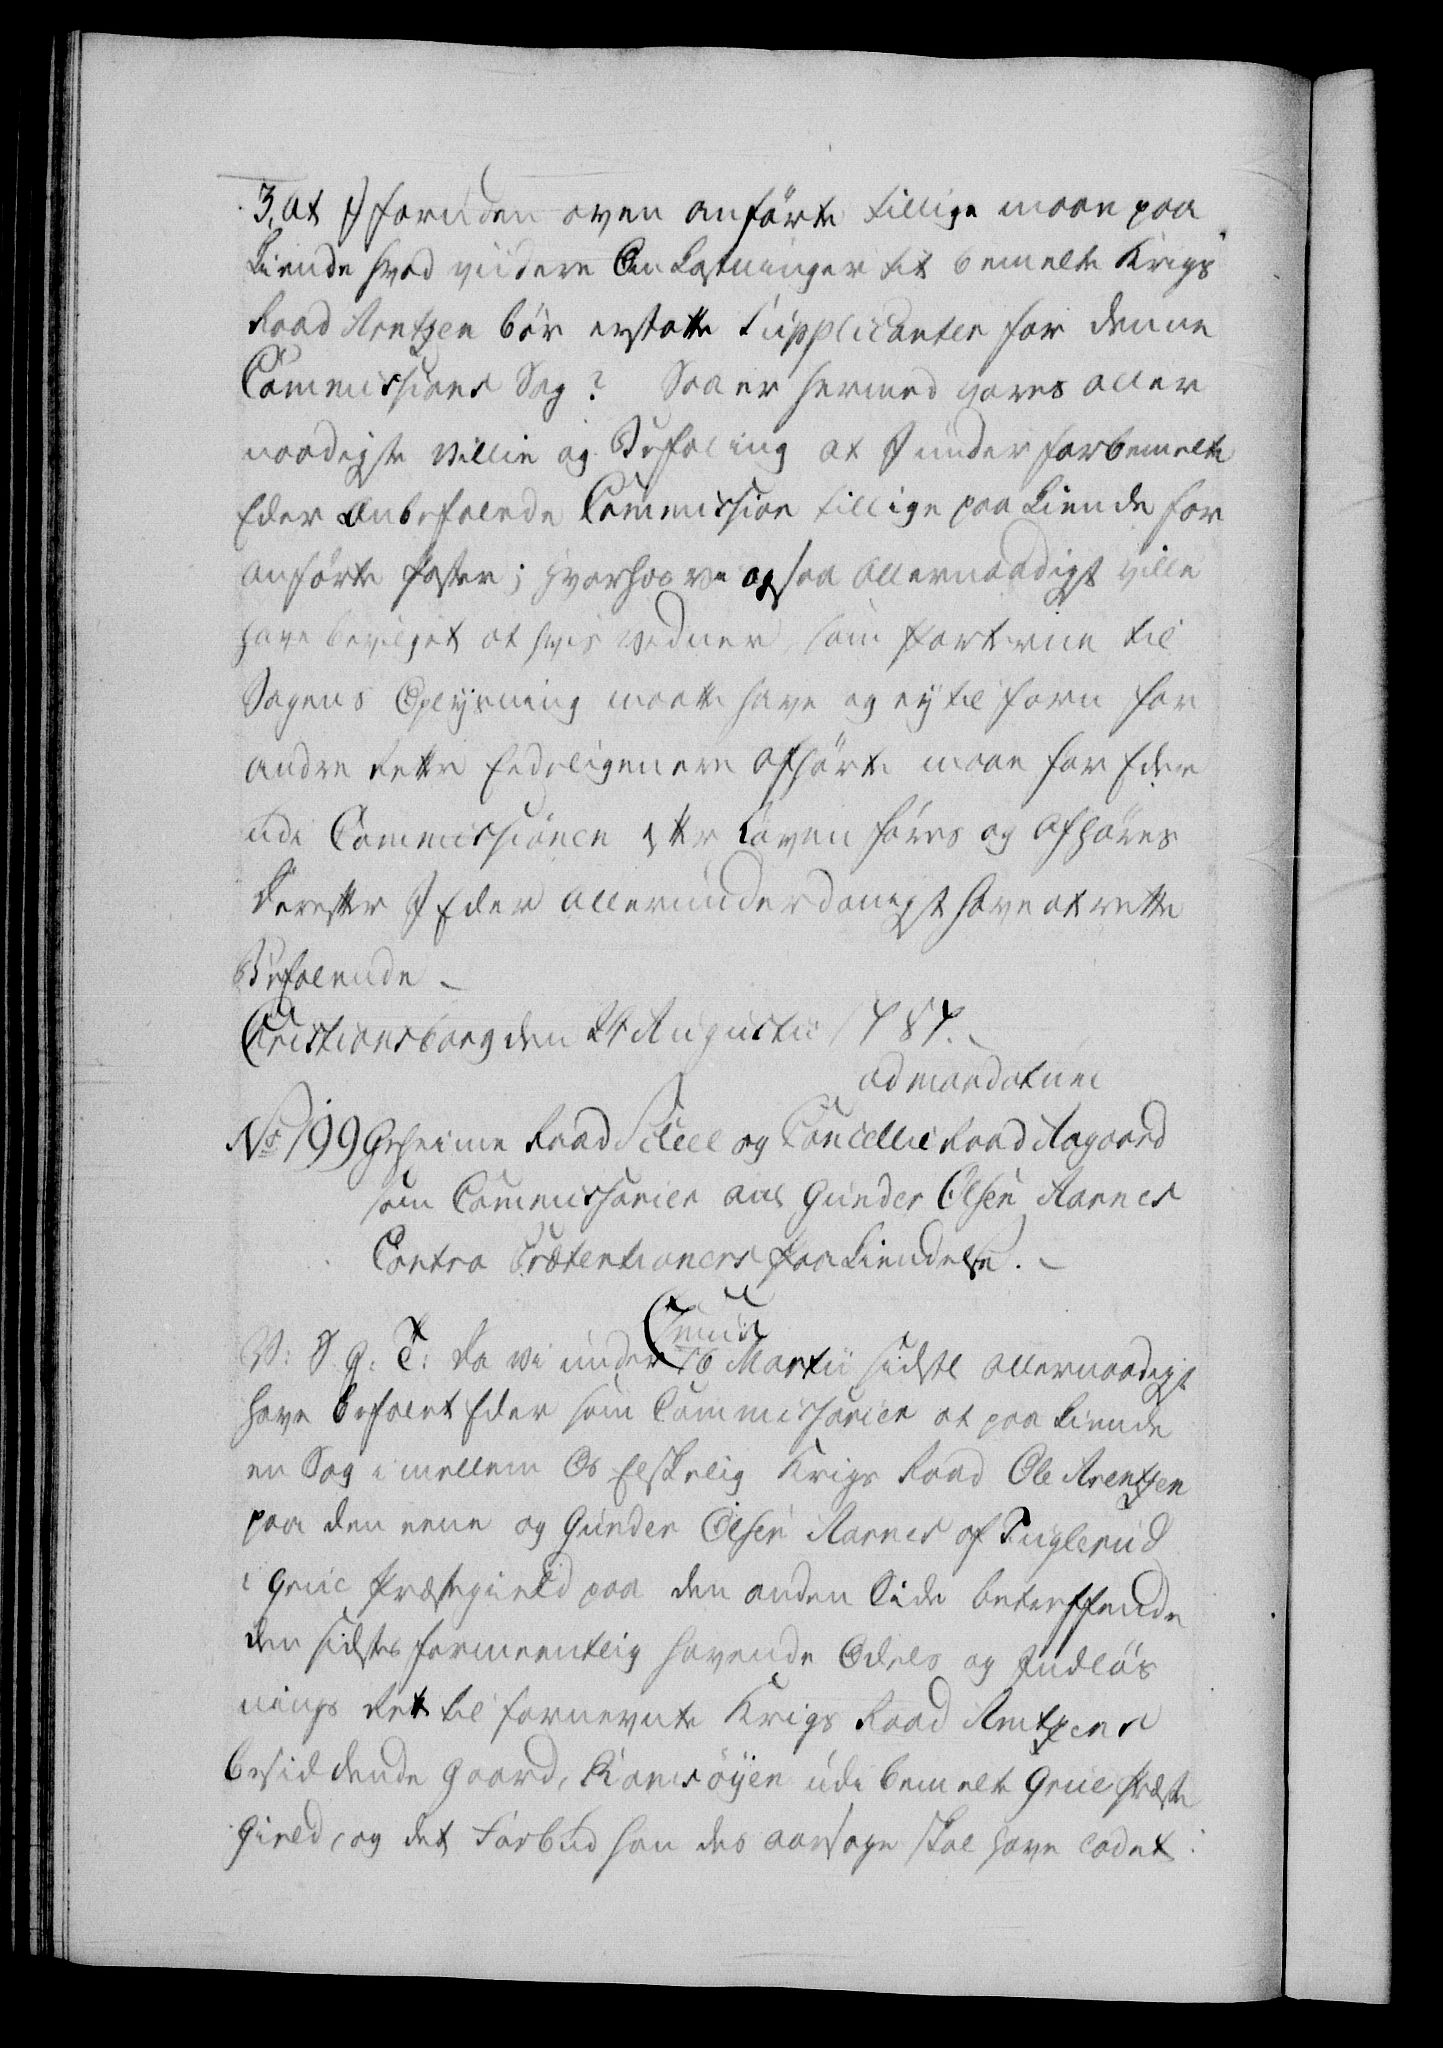 3, at I foruden oven anförte tillige maae paa
kiende hvad viidere Omkostninger til bemelte Krigs
Raad Arntzen bör erstatte Supplicanten for denne
Commissions Sag? Saa er hermed vores aller
naadigste Villie og Befaling at I under forbemelte
Eder anbefalede Commission tillige paakiende for
anförte Poster; hvorhos vi ogsaa allernaadigst ville
have bevilget at hvis Vidner, som Parterne til
Sagens Oplysning maatte have og ey tilforn for
andre Rette Eedeligen ere afhörte maae for Eder
udi Commissionen efter Loven föres og afhöres
Derefter I Eder allerunderdanigst have at rette
Befalende –
Cristiansborg den 24 Augustii 1787. –
ad mandatum
No 199 Geheime Raad Scheel og Cancellie Raad Aagaard
som Commissarier ans Gunder Olsen Aarnes
Contra Prætentioners Paakiendelse. –
V: S G: T: Da vi under 16 Martii sidstl allernaadigst
have befalet Eder som Commissarier at paakiende
en Sag imellem Os Elskelig Krigs Raad Ole Arentzen
paa den eene og Gunder Olsen Aarnes af Fuglerud
i Grue Præstegield paa den anden Side betreffende
den sidstes formeentlig havende Odels og Indlös
nings Ret til fornevnte Krigs Raad Arntzens
besiddende Gaard, Kiamsöyen udi bemelte Grue Præste
Gield, og det Forbud han des aarsage skal have ladet